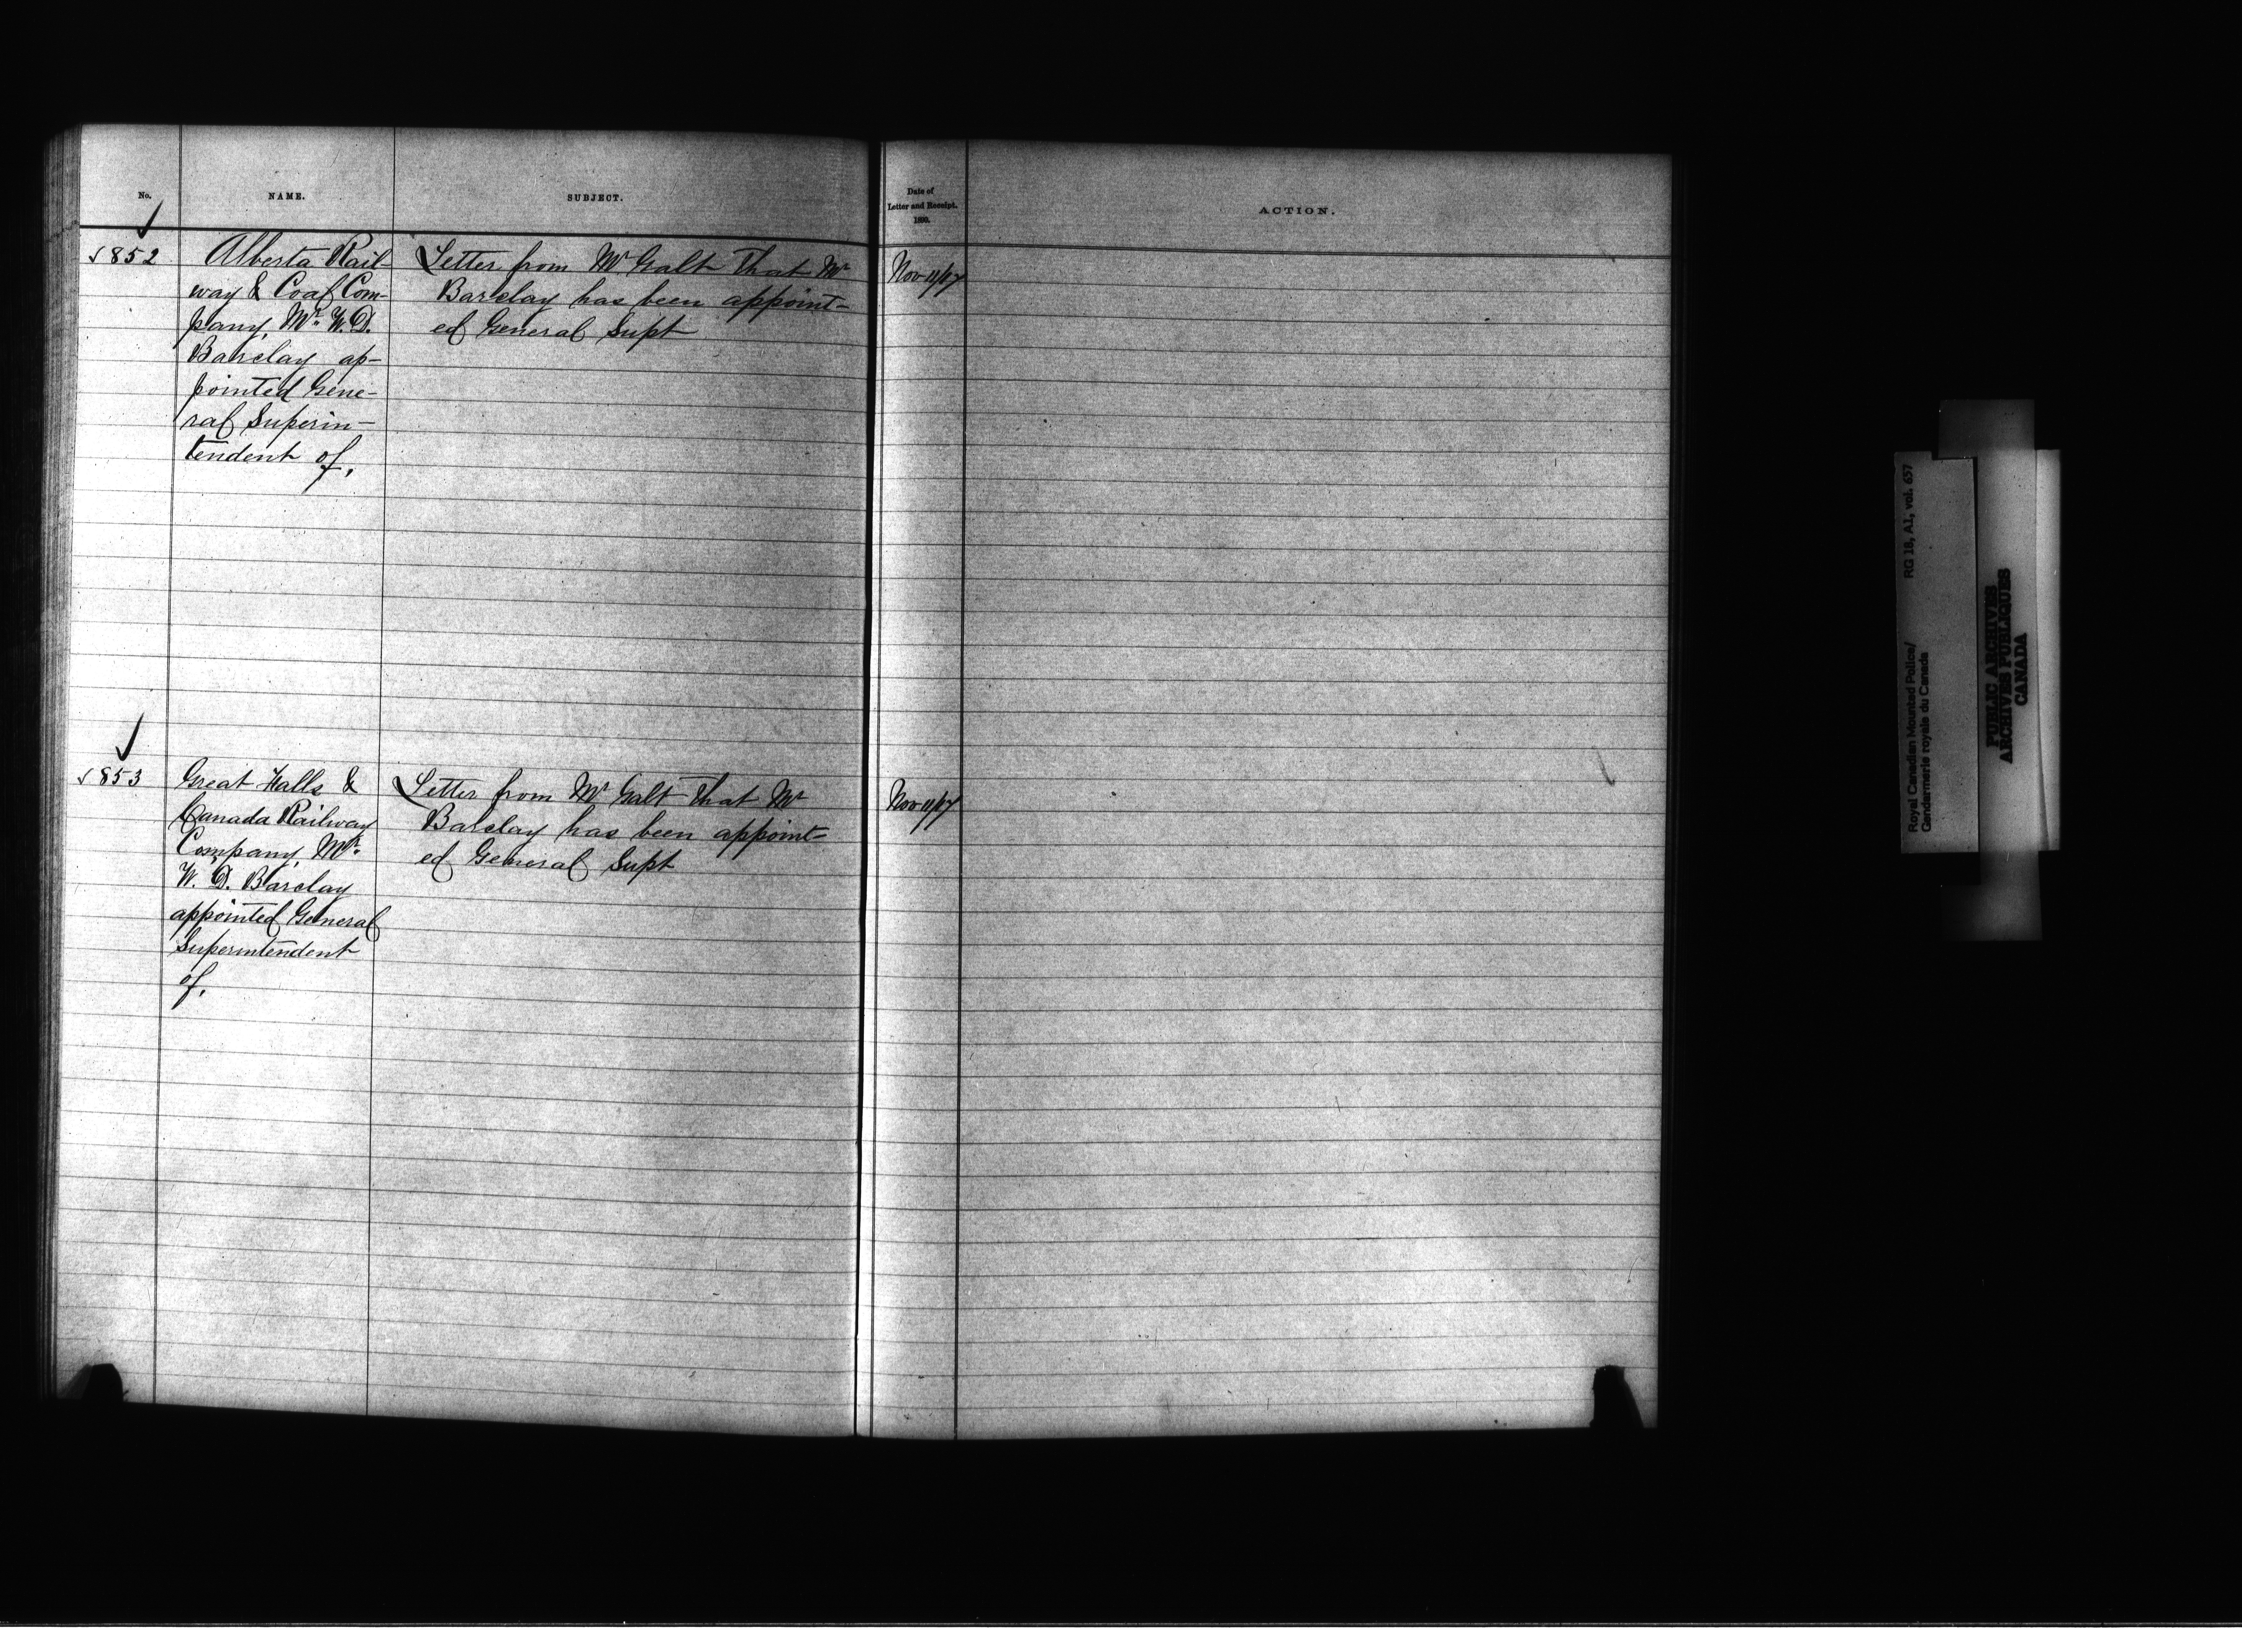 No.
NAME.
SUBJECT.
Date of
Letter and Receipt.
1890.
ACTION.
852
Alberta Rail-
way & Coal Com-
pany, Mr. W. D.
Barclay ap-
pointed Gene-
ral Superin-
tendent of.
Letter from Mr Galt that Mr
Barclay has been appoint-
ed General Supt
Nov 11/17
853
Great Falls &
Canada Railway
Company, Mr.
W. D. Barclay
appointed General
Superintendent
of.
Letter from Mr Galt that Mr
Barclay has been appoint-
ed General Supt
Nov 11/17
Royal Canadian Mounted Police/
Gendarmerie royale du Canada
RG 18, A1, vol. 657
PUBLIC ARCHIVES
ARCHIVES PUBLIQUES
CANADA